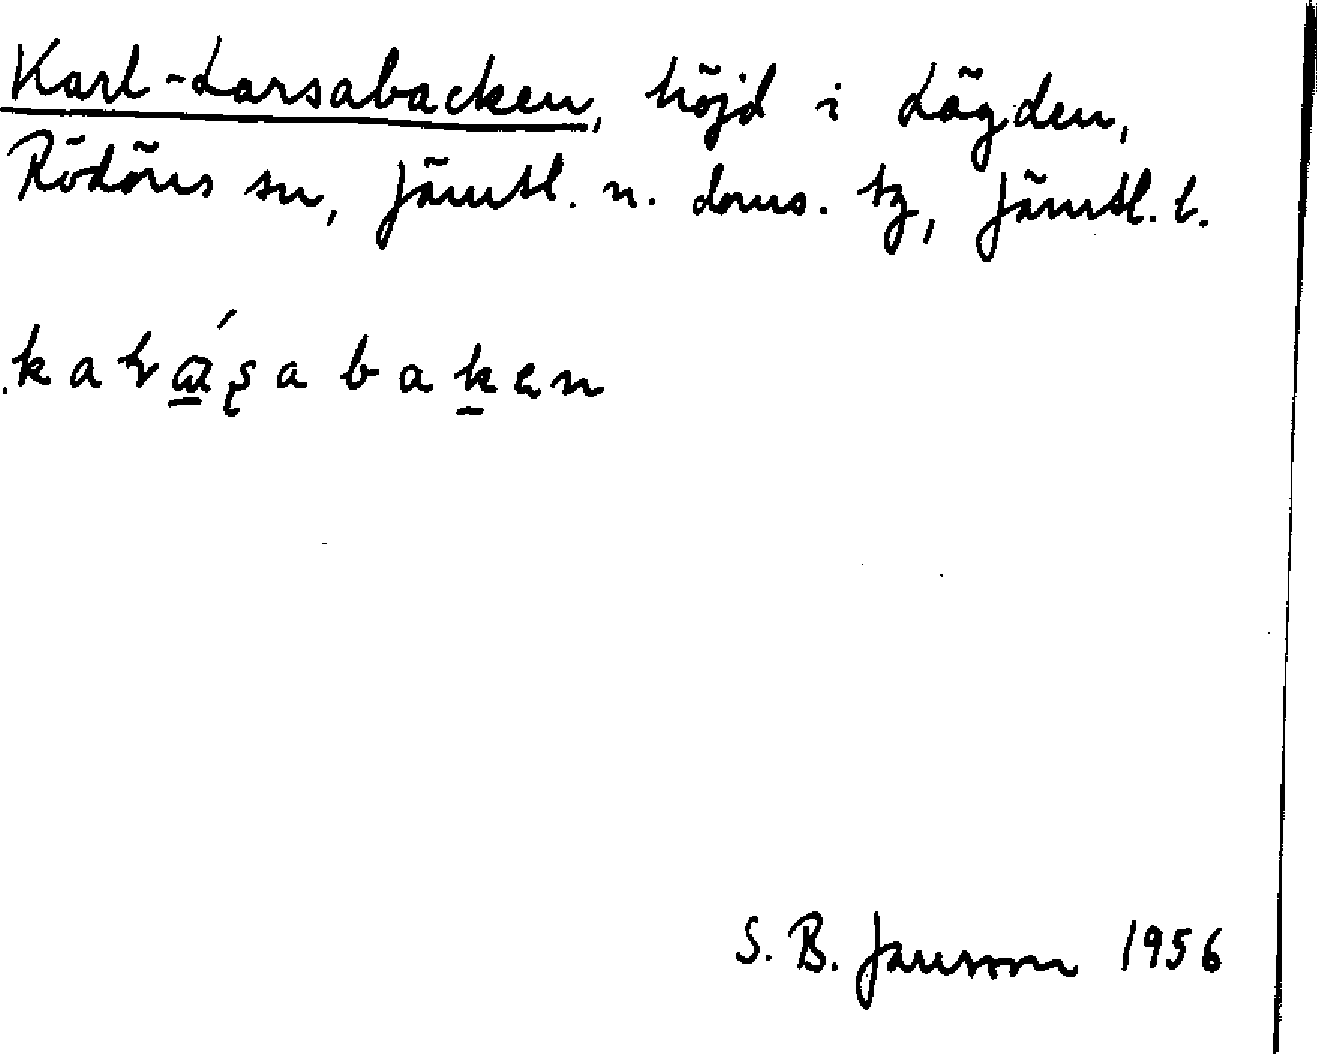 Karl-Larsabacken, höjd i Lägden,
Rödöns sn, Jämtl. n. doms. tg, Jämtl. l.
S. B. Jansson 1956